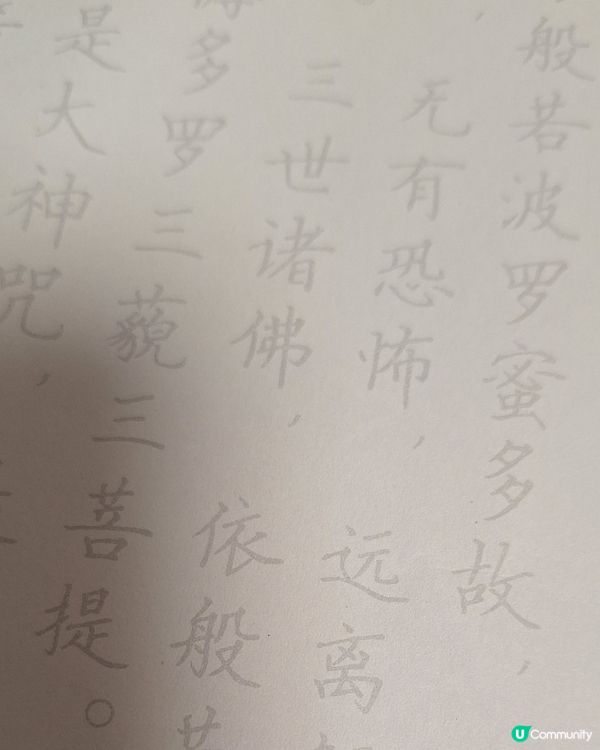 般若波罗蜜多故，
，无有恐怖，远离
三世诸佛，依般
多罗三藐三菩提。
是大神咒，
U Community